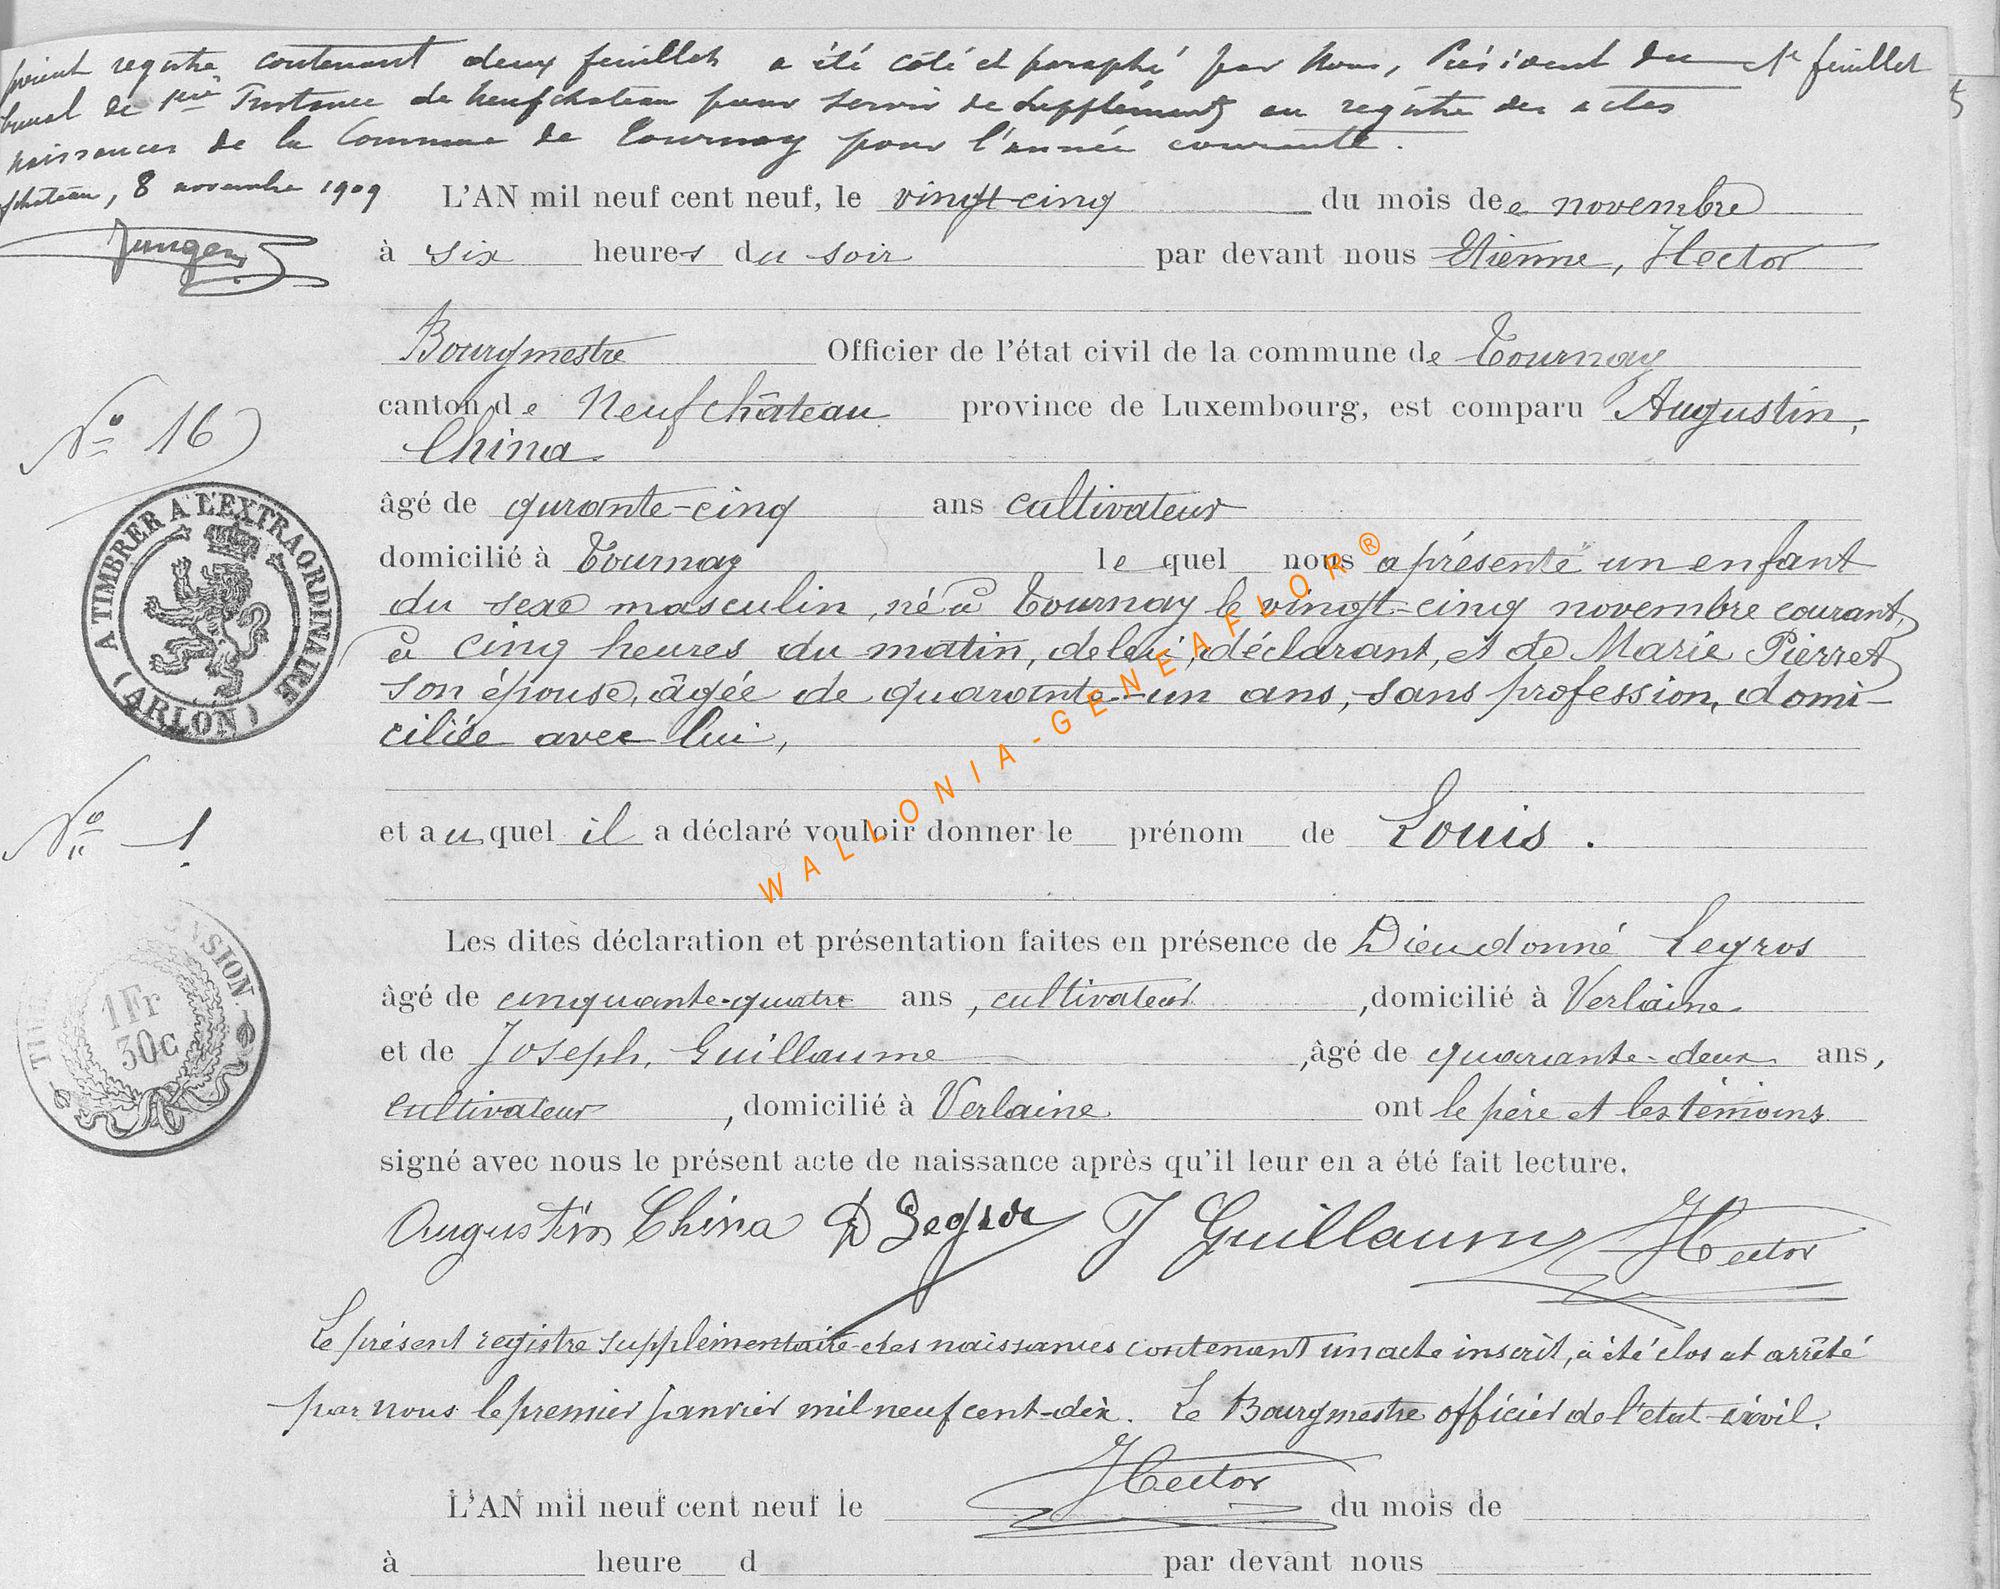 présent registre contenant deux feuillets a été côté et paraphé par Nous, Président du 1er feuillet
bunal de 1ère Instance de Neufchateau pour servir de supplément au registre des actes 5
naissances de la Commune de Tournay pour l'année courante.
fchateau, 8 novembre 1909
L'AN mil neuf cent neuf, le vingt-cinq du mois de novembre
à six heures du soir par devant nous Etienne, Hector
Bourgmestre Officier de l'état civil de la commune de Tournay
canton de Neufchâteau province de Luxembourg, est comparu Augustin,
China
N° 16
âgé de quronte-cinq ans cultivateur
domicilié à Tournay le quel nous a présenté un enfant
du sexe masculin, né à Tournay le vingt-cinq novembre courant,
à cinq heures du matin, de lui, déclarant, et de Marie Pierret
son épouse, âgée de quarante-un ans, sans profession, domi-
ciliée avec lui,
A TIMBRER A L'EXTRAORDINAIRE
(ARLON)
N° 1
et au quel il a déclaré vouloir donner le prénom de Louis.
Les dites déclaration et présentation faites en présence de Dieudonné Legros
âgé de cinquante-quatre ans, cultivateur, domicilié à Verlaine
et de Joseph, Guillaume, âgé de quarante-deux ans,
cultivateur, domicilié à Verlaine ont le père et les témoins
signé avec nous le présent acte de naissance après qu'il leur en a été fait lecture.
1 Fr
30c
Augustin China D Legros J Guillaume Hector
Le présent registre supplémentaire des naissances contenant un acte inscrit, a été clos et arrêté
par nous le premier janvier mil neuf cent-dix. Le Bourgmestre officier de l'état-civil.
Hector
L'AN mil neuf cent neuf le du mois de
à heure d par devant nous
WALLONIA-GENEAFLOR®